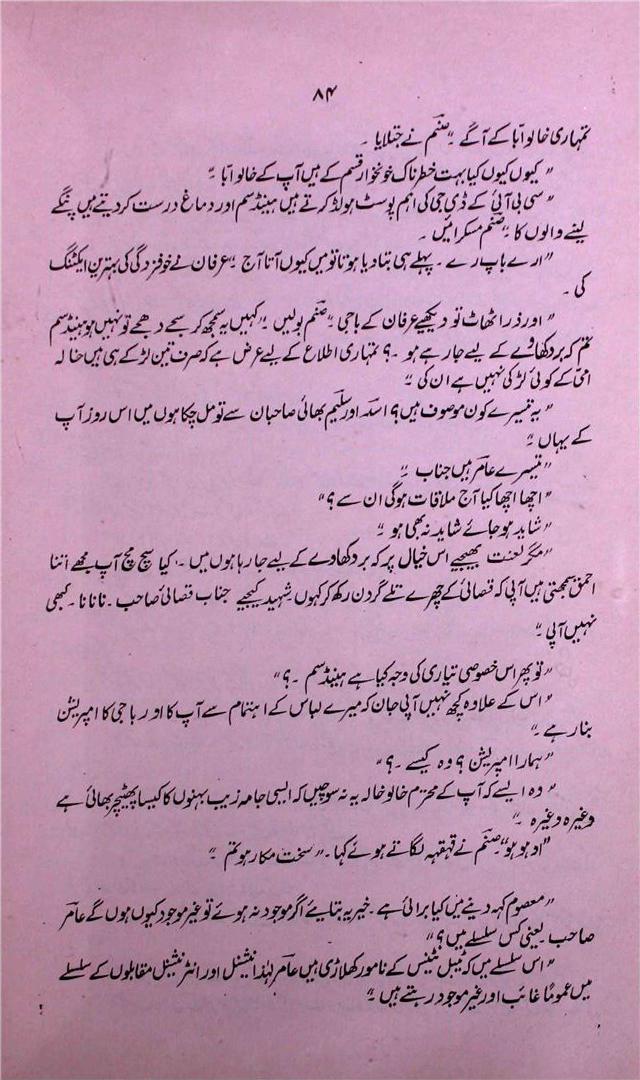 ۸۴
تمہاری خالو ابا کے آگے ۔" صنم نے جتلایا ۔
" کیوں کیوں کیا بہت خطرناک خونخوار قسم کے ہیں آپ کے خالو ابا ۔"
" سی بی آئی کے ڈی جی کی اہم پوسٹ ہولڈ کرتے ہیں ہینڈسم اور دماغ درست کر دیتے ہیں پنگے
لینے والوں کا ۔" صنم مسکرائیں ۔
" ارے باپ رے ۔ پہلے ہی بتا دیا ہوتا تو میں کیوں آتا آج ۔" عرفان نے خوفزدگی کی بہترین ایکٹنگ
کی ۔
" اور ذرا ٹھاٹ تو دیکھیے عرفان کے باجی ۔" صنم بولیں ۔" کہیں یہ سمجھ کر سجے دھجے تو نہیں ہو ہینڈسم
تم کہ بر دکھاوے کے لیے جا رہے ہو ۔؟ تمہاری اطلاع کے لیے عرض ہے کہ صرف تین لڑکے ہی ہیں خالہ
امی کے کوئی لڑکی نہیں ہے ان کی ۔"
" یہ تیسرے کون موصوف ہیں؟ اسد اور سلیم بھائی صاحبان سے تو مل چکا ہوں میں اس روز آپ
کے یہاں ۔"
" تیسرے عامر ہیں جناب ۔"
" اچھا اچھا کیا آج ملاقات ہوگی ان سے ؟"
" شاید ہو جائے شاید نہ بھی ہو ۔"
" مگر لعنت بھیجیے اس خیال پر کہ بر دکھاوے کے لیے جا رہا ہوں میں ۔ کیا سچ مچ آپ مجھے اتنا
احمق سمجھتی ہیں آپی کہ قصائی کے چھرے تلے گردن رکھ کر کہوں شہید کیجیے جناب قصائی صاحب ۔ نا نا نا ۔ کبھی
نہیں آپی ۔"
" تو پھر اس خصوصی تیاری کی وجہ کیا ہے ہینڈسم ۔؟"
" اس کے علاوہ کچھ نہیں آپی جان کہ میرے لباس کے اہتمام سے آپ کا اور باجی کا امپریشن
بنا رہے ۔"
" ہمارا امپریشن ؟ وہ کیسے ۔؟"
" وہ ایسے کہ آپ کے محترم خالو خالہ یہ نہ سوچیں کہ ایسی جامہ زیب بہنوں کا کیسا پھٹیچر بھائی ہے
وغیرہ وغیرہ ۔"
" او ہو ہو" صنم نے قہقہہ لگاتے ہوئے کہا ۔" سخت مکار ہو تم ۔"
" معصوم کہہ دینے میں کیا برائی ہے ۔ خیر یہ بتایئے اگر موجود نہ ہوئے تو غیر موجود کیوں ہوں گے عامر
صاحب یعنی کس سلسلے میں ؟"
" اس سلسلے میں کہ ٹیبل ٹینس کے نامور کھلاڑی ہیں عامر لہٰذا نیشنل اور انٹرنیشنل مقابلوں کے سلسلے
میں عموماً غائب اور غیر موجود رہتے ہیں ۔"